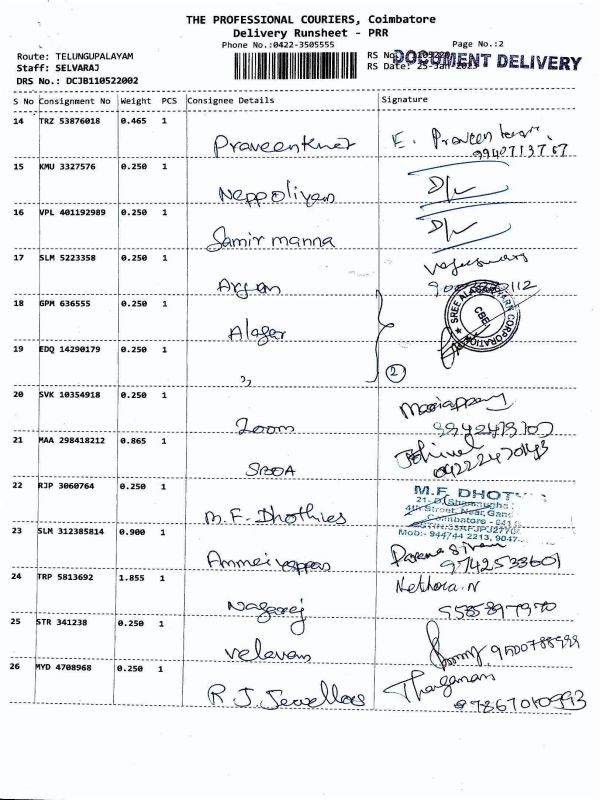 THE PROFESSIONAL COURIERS, Coimbatore
Delivery Runsheet - PRR
Phone No.:0422-3505555 Page No.:2
Route: TELUNGUPALAYAM RS No.
Staff: SELVARAJ RS Date: 25-Jan-2023
DRS No.: DCJB110522002
DOCUMENT DELIVERY
S No Consignment No Weight PCS Consignee Details Signature
14 TRZ 53876018 0.465 1 E. Praveen
15 KMU 3327576 0.250 1 Neppoliyan
16 VPL 401192989 0.250 1 Samir manna
17 SLM 5223358 0.250 1 Arjun
18 GPM 636555 0.250 1 Alagar
SREE ALAGAR CORPORATION CBE
19 EDQ 14290179 0.250 1 "
2
20 SVK 10354918 0.250 1 Zoom Mariappan
21 MAA 298418212 0.865 1 SBOA 04222470143
22 RJP 3060764 0.250 1 M.F. Dhothies
M.F. DHOT
4th Street, Near
Coimbatore - 641
Mob:- 944744 2213, 9047
23 SLM 312385814 0.900 1 Ammeiyappan 9742533601
24 TRP 5813692 1.855 1 Nagaraj Nethora.N
25 STR 341238 0.250 1 Velavan
26 MYD 4708968 0.250 1 R.J. Jewellers Thangamani